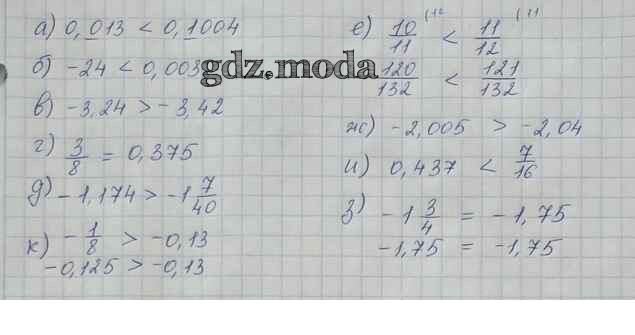 а) 0,013 < 0,1004
б) -24 < 0,003
в) -3,24 > -3,42
г) 3/8 = 0,375
д) -1,174 > -1 7/40
к) -1/8 > -0,13
-0,125 > -0,13
е) 10/11 < 11/12
120/132 < 121/132
ж) -2,005 > -2,04
и) 0,437 < 7/16
з) -1 3/4 = -1,75
-1,75 = -1,75
gdz.moda